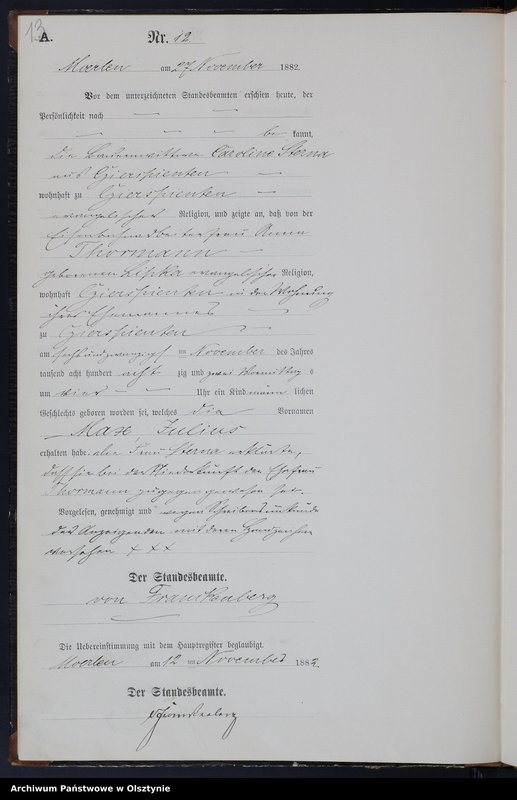 13
A.
Nr. 12
Moerlen am 27 November 1882
Vor dem unterzeichneten Standesbeamten erschien heute, der
Persönlichkeit nach
be kannt,
die Caroline Sterna
aus Gierspienten
wohnhaft zu Gierspienten
evangelischer Religion, und zeigte an, daß von der
Eisenbahnarbeiterfrau Anna
Thormann
geborenen Lipka evangelischer Religion,
wohnhaft Gierspienten in der Wohnung
ihres Ehemannes
zu Gierspienten
am sechsundzwanzigst im November des Jahres
tausend acht hundert acht zig und zwei Vormittag s
um vier Uhr ein Kind männ lichen
Geschlechts geboren worden sei, welches die Vornamen
Max, Julius
erhalten habe. die Frau Sterna erklärte,
daß sie bei der Niederkunft der Ehefrau
Thormann zugegen gewesen sei.
Vorgelesen, genehmigt und wegen Schreibensunkunde
der Anzeigenden mit deren Handzeichen
versehen x x x
Der Standesbeamte.
von Frankenberg
Die Uebereinstimmung mit dem Hauptregister beglaubigt.
Moerlen am 12 November 1882.
Der Standesbeamte.
Archiwum Państwowe w Olsztynie